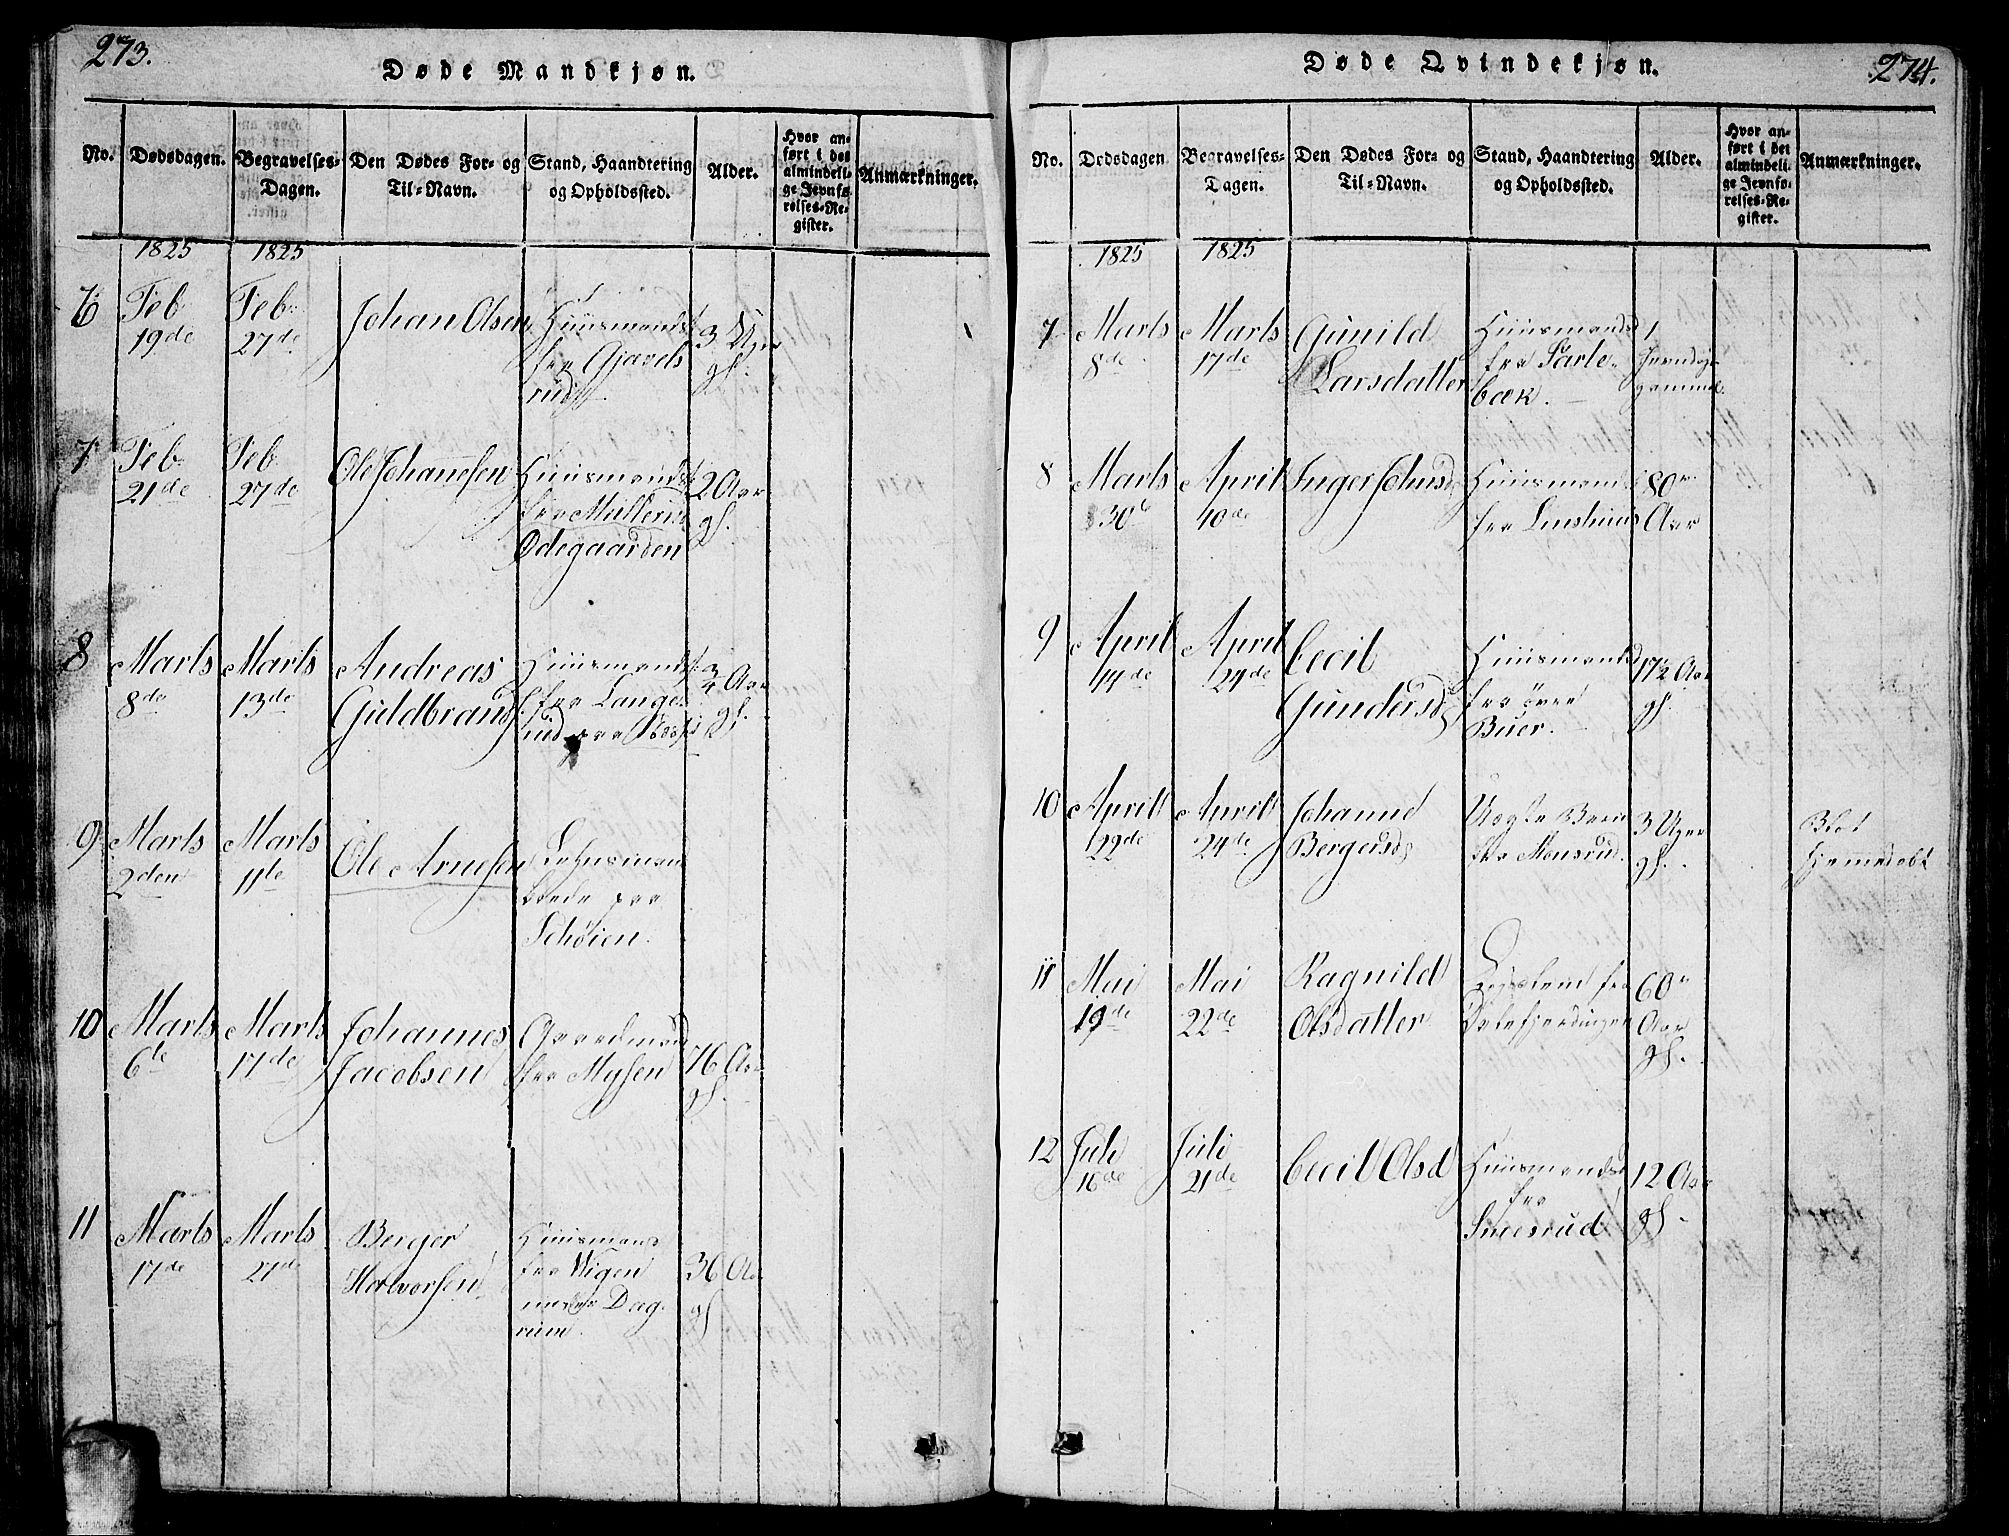 273.
Døde Mandkjøn.
No. Dødsdagen. Begravelses-Dagen. Den Dødes For- og Til-Navn. Stand, Haandtering og Opholdssted. Alder. Hvor anført i det almindelige Jevnførelses-Register. Anmærkninger.
1825 1825
6 Feb 19de Feb 27de Johan Olsen Huusmands fra Gjavelsrud 3 Uger gl.
7 Feb 21de Feb 27de Ole Johannesen Huusmands fra Ødegaarden 2 Aar gl.
8 Marts 8de Marts 13de Andreas Guldbrands Huusmands fra Langesrud 3/4 Aar gl.
9 Marts 2den Marts 11te Ole Arnesen paa Schøien.
10 Marts 6te Marts 17de Johannes Jacobsen Gaardmand fra Mysen 76 Aar gl.
11 Marts 17de Marts 27de Berger Halvorsen Huusmand fra Wigen under Dagrum. 36 Aar gl
274.
Døde Qvindekjøn.
No. Dødsdagen Begravelses-Dagen. Den Dødes For- og Til-Navn. Stand, Haandtering og Opholdssted. Alder. Hvor anført i det almindelige Jevnførelses-Register. Anmærkninger.
1825 1825
7 Marts 8de Marts 17de Gunild Larsdatter Huusmandsd fra Sarlebæk. 1
8 Marts 30te April 10de Inger Johnsd Huusmands fra 80 Aar
9 April 14de April 24de Cecil Gundersd Huusmandsd fra øvre Buer. 17½ Aar gl.
10 April 22de April 24de Johanne Bergersd Uægte Barn fra Monsrud. 3 Uger gl. Blot hjemmedøbt
11 Mai 19de Mai 22de Ragnild Olsdatter Lægslem fra 60 Aar gl.
12 Juli 16de Juli 21de Cecil Olsd Huusmandsd fra Sneesrud 12 Aar gl.